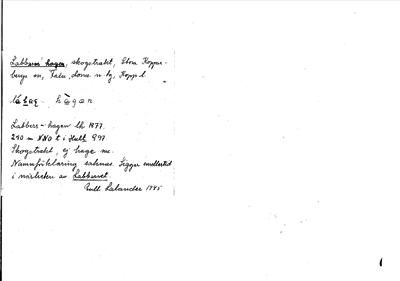 Labbers hagen, skogstrakt, Stora Koppar-
bergs sn, Falu doms. n. tg, Kopp. l.
hàgan
Labbers-hagen bk 1877.
290 m NNO t i Hult G 97.
Skogstrakt, ej hage nu.
Namnförklaring saknas. Ligger emellertid
i närheten av Labbarvet.
Gull Labander 1945